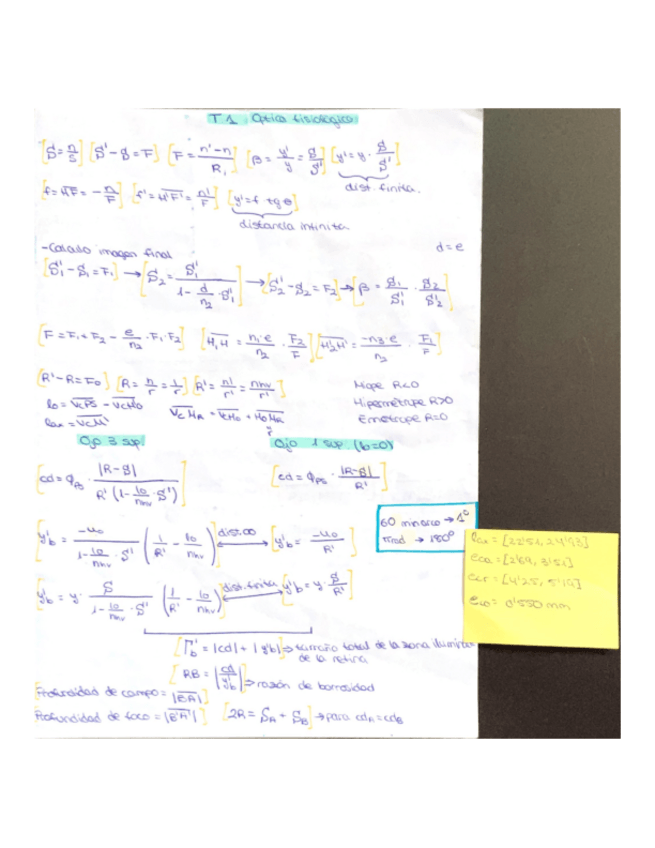 T.1 Óptica fisiológica
[S = n/s] [S' - S = F] [F = (n' - n)/R₁] [β = y'/y = S/S'] [y' = y · S/S']
dist. finita.
f = \overline{HF} = -n/F] [f' = \overline{H'F'} = n'/F] [y' = f · tgθ]
distancia infinita
- Calculo imagen final
d = e
[S'₁ - S₁ = F₁] → [S₂ = S'₁/(1 - d/n₂ · S'₁)] → [S'₂ - S₂ = F₂] → [β = S₁/S'₁ · S₂/S'₂]
[F = F₁ + F₂ - e/n₂ · F₁ · F₂] [\overline{H₁H} = n₁·e/n₂ · F₂/F] [\overline{H'₂H'} = -n₃·e/n₂ · F₁/F]
[R' - R = F₀] [R = n/r = 1/r] [R' = n'/r' = nhv/r']
Miope R<0
Hipermétrope R>0
Emétrope R=0
\overline{VcMR} = \overline{VcH0} + \overline{H0MR}
r
Ojo 3 sup.
Ojo 1 sup. (l0=0)
[cd = ΦPS · |R-S|/(R'(1 - l0/nhv · S'))]
[cd = ΦPS · |R-S|/R']
60 minarco → 1º
πrad → 180º
[y'b = -u0/(1 - l0/nhv · S') (1/R' - l0/nhv)] dist.∞ ↔ [y'b = -u0/R']
[y'b = y · S/(1 - l0/nhv · S') (1/R' - l0/nhv)] dist. finita ↔ [y'b = y · S/R']
= [22'51, 24'93]
= [2'69, 3'51]
= [4'25, 5'19]
= 0'550 mm
[Γ'b = |cd| + |y'b| ⇒ tamaño total de la zona
de la retina
[RB = |cd/y'b|] ⇒ razón de borrosidad
Profundidad de campo = |\overline{BA}|]
Profundidad de foco = |\overline{B'A'}|] [2R = SA + SB] → para cdA = cdB